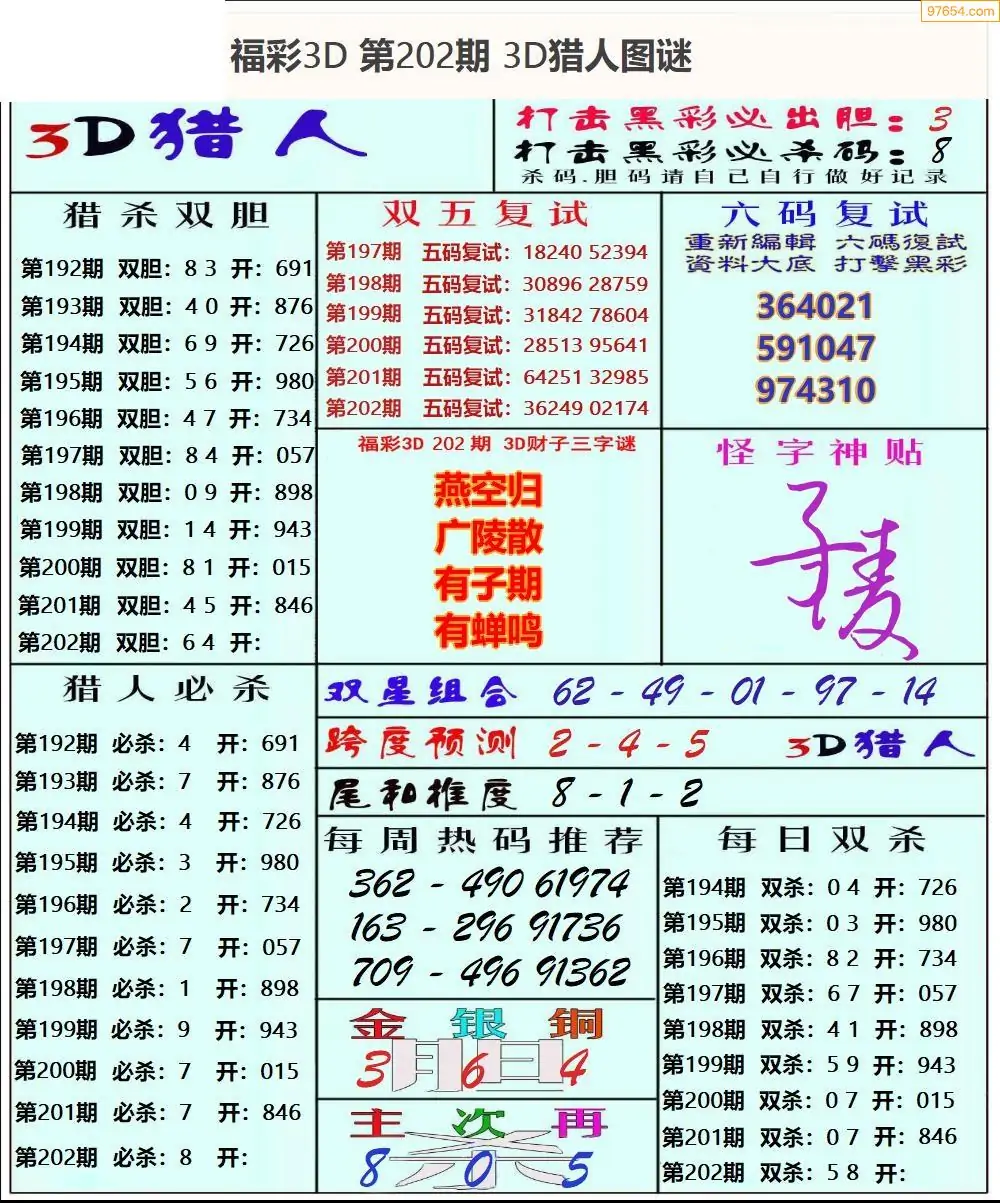 97654.com
福彩3D 第202期 3D猎人图谜
3D猎人
打击黑彩必出胆：3
打击黑彩必杀码：8
杀码.胆码请自己自行做好记录
猎杀双胆
第192期 双胆：8 3 开：691
第193期 双胆：4 0 开：876
第194期 双胆：6 9 开：726
第195期 双胆：5 6 开：980
第196期 双胆：4 7 开：734
第197期 双胆：8 4 开：057
第198期 双胆：0 9 开：898
第199期 双胆：1 4 开：943
第200期 双胆：8 1 开：015
第201期 双胆：4 5 开：846
第202期 双胆：6 4 开：
双五复试
第197期 五码复试：18240 52394
第198期 五码复试：30896 28759
第199期 五码复试：31842 78604
第200期 五码复试：28513 95641
第201期 五码复试：64251 32985
第202期 五码复试：36249 02174
六码复试
重新編輯 六碼復試
資料大底 打擊黑彩
364021
591047
974310
福彩3D 202 期 3D财子三字谜
燕空归
广陵散
有子期
有蝉鸣
怪字神贴
猎人必杀
第192期 必杀：4 开：691
第193期 必杀：7 开：876
第194期 必杀：4 开：726
第195期 必杀：3 开：980
第196期 必杀：2 开：734
第197期 必杀：7 开：057
第198期 必杀：1 开：898
第199期 必杀：9 开：943
第200期 必杀：7 开：015
第201期 必杀：7 开：846
第202期 必杀：8 开：
双星组合 62 - 49 - 01 - 97 - 14
跨度预测 2 - 4 - 5 3D猎人
尾和推度 8 - 1 - 2
每周热码推荐
362 - 490 61974
163 - 296 91736
709 - 496 91362
金 银 铜
胆日
3 6 4
主 次 再
杀
8 0 5
每日双杀
第194期 双杀：0 4 开：726
第195期 双杀：0 3 开：980
第196期 双杀：8 2 开：734
第197期 双杀：6 7 开：057
第198期 双杀：4 1 开：898
第199期 双杀：5 9 开：943
第200期 双杀：0 7 开：015
第201期 双杀：0 7 开：846
第202期 双杀：5 8 开：